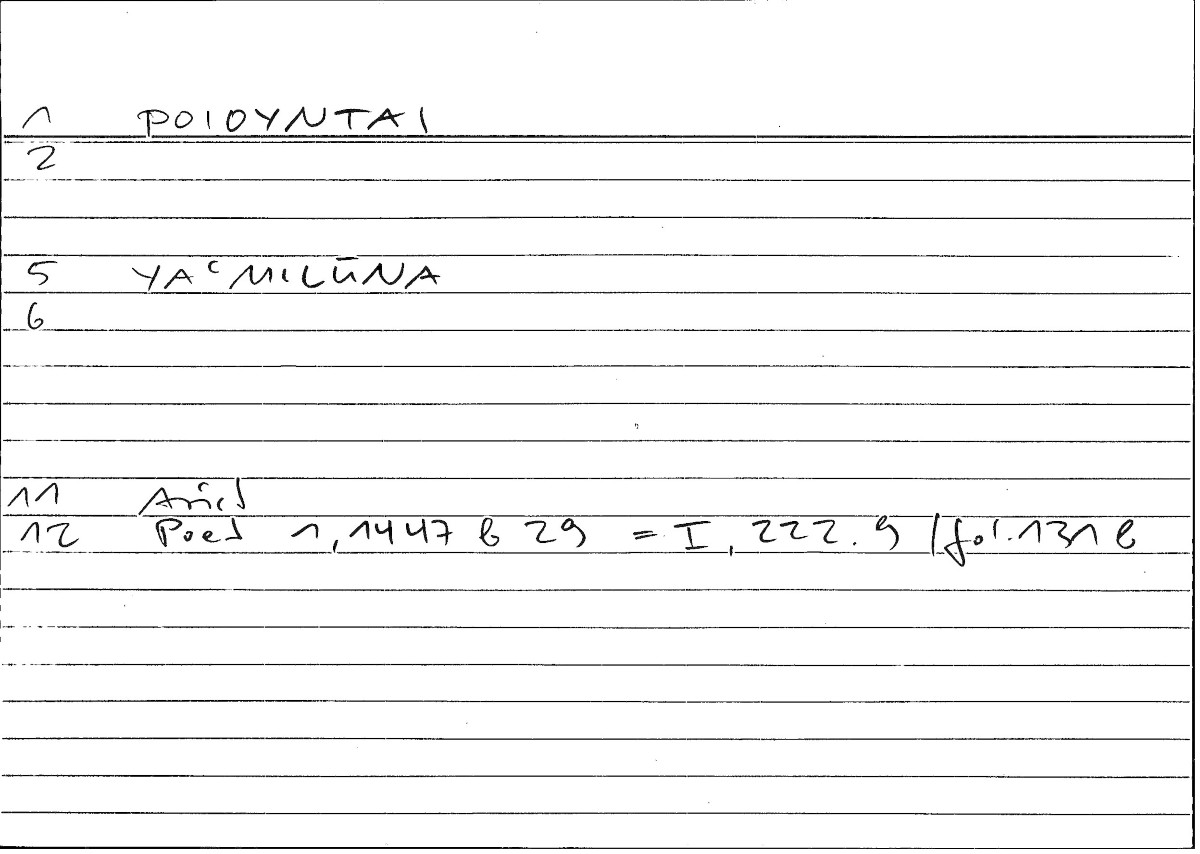 1 POIOYNTAI
2
5 YAʿMILŪNA
6
11 Arist
12 Poet 1, 1447 b 29 = I, 222.9 / fol. 131 b